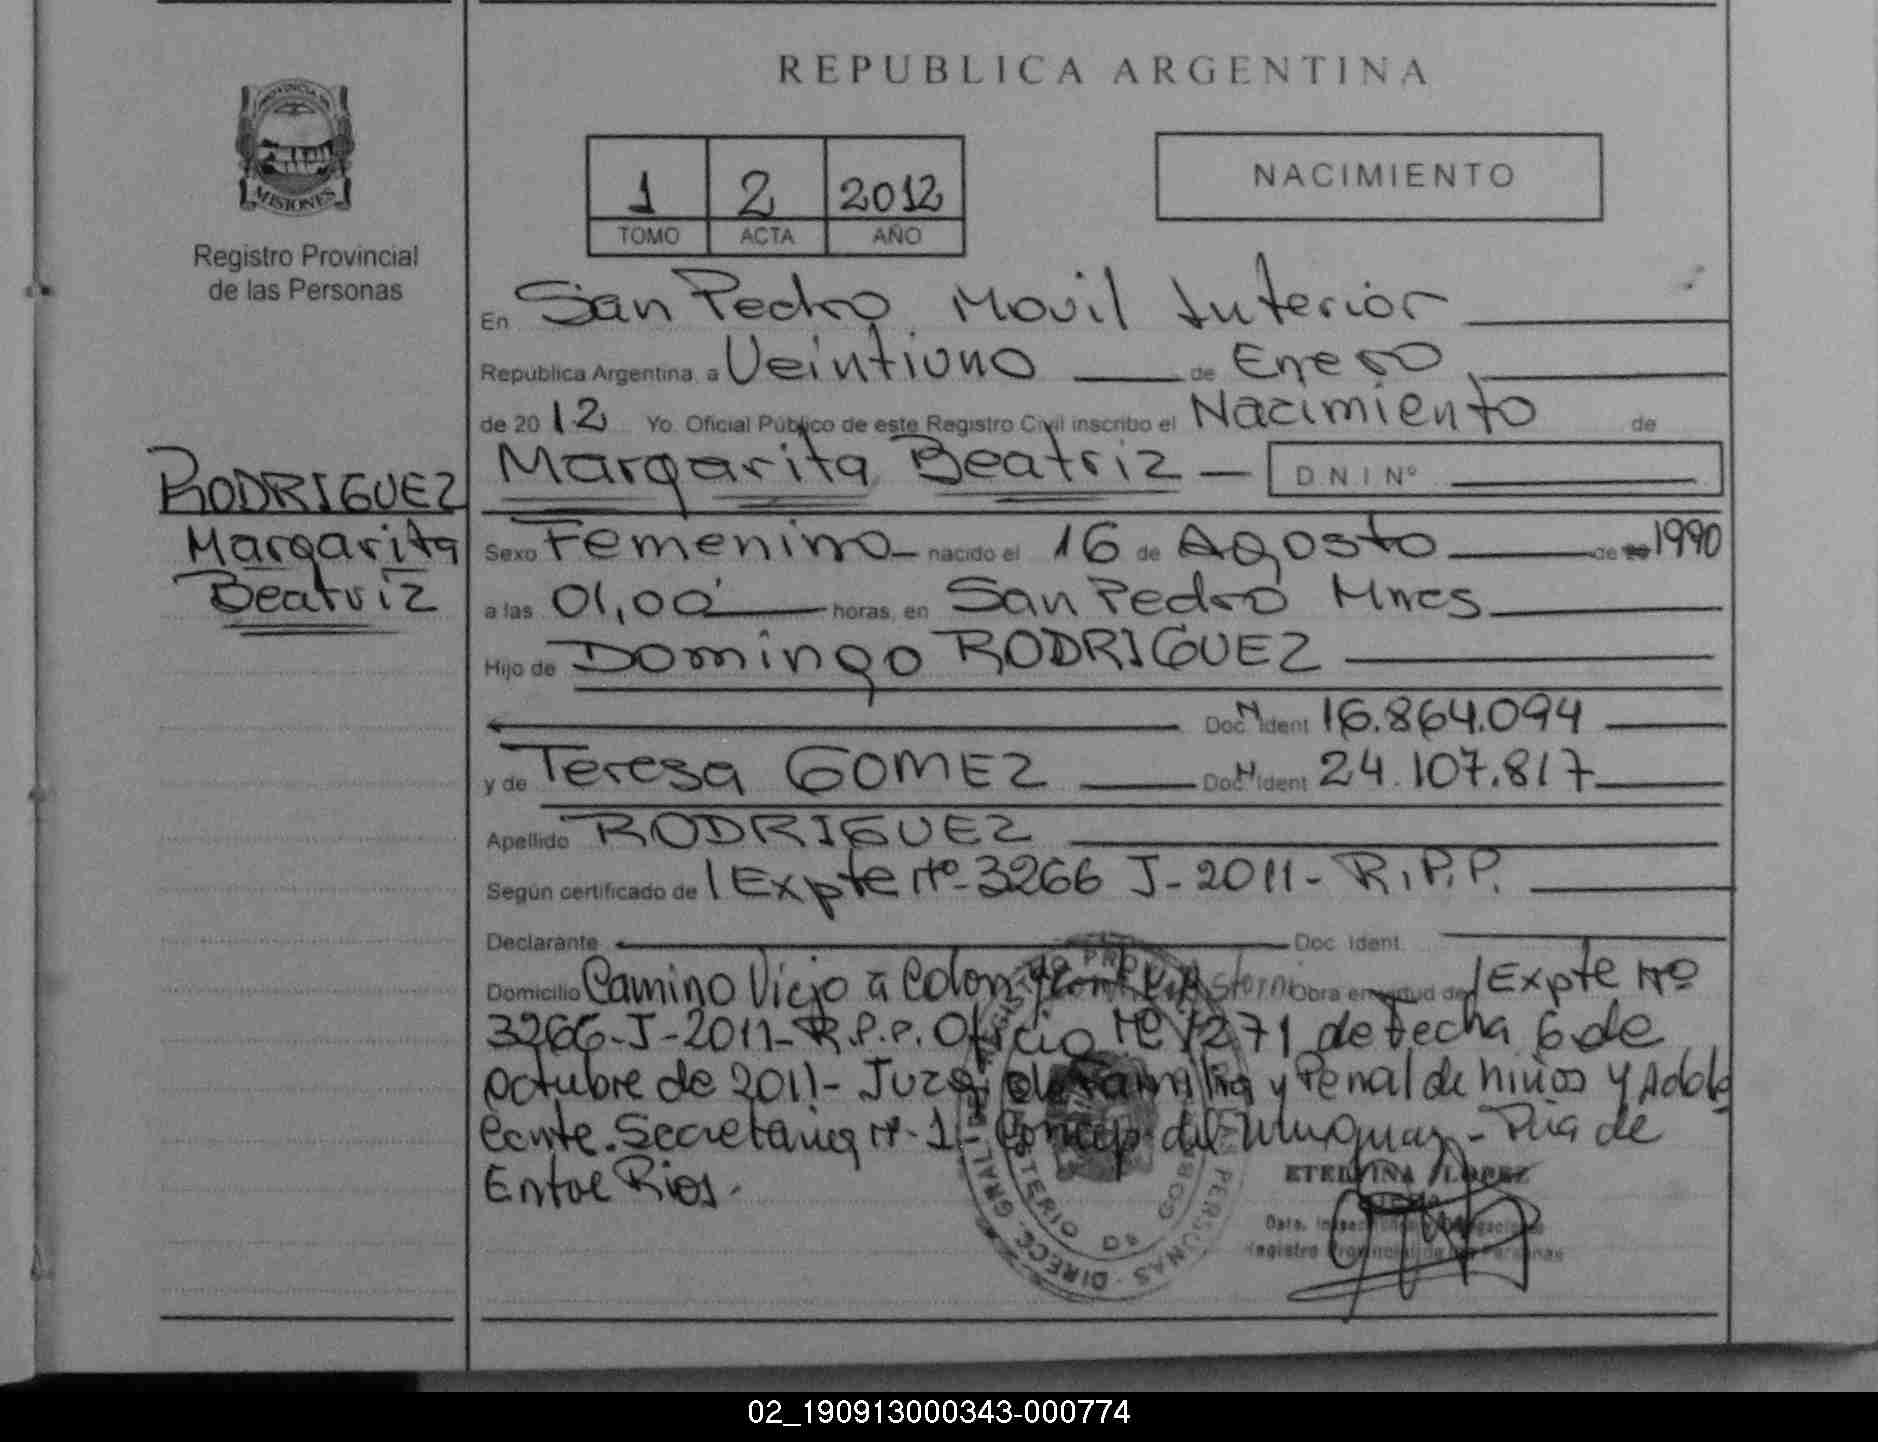 REPUBLICA ARGENTINA
PROVINCIA DE
MISIONES
Registro Provincial
de las Personas
1 2 2012
TOMO ACTA AÑO
NACIMIENTO
En San Pedro Movil Interior
Republica Argentina, a Veintiuno de Enero
de 2012 Yo. Oficial Público de este Registro Civil inscribo el Nacimiento de
Margarita Beatriz D N I Nº
RODRIGUEZ
Margarita
Beatriz
Sexo Femenino nacido el 16 de Agosto de 1990
a las 01,00 horas, en San Pedro Mnes
Hijo de Domingo RODRIGUEZ
Doc. N Ident 16.864.094
y de Teresa GOMEZ Doc. N Ident 24.107.817
Apellido RODRIGUEZ
Según certificado de / Expte Nº-3266 J-2011- R.P.P.
Declarante Doc. Ident.
Domicilio Camino Viejo a Colon Obra en virtud de / Expte Nº
3266-J-2011-R.P.P. Oficio Nº 1271 de Fecha 6 de
Octubre de 2011- Juzg. de Familia y Penal de niños y Adoles
cente. Secretaria Nº-1- Concep. del Uruguay - Pcia de
Entre Rios.
ETELVINA LOPEZ
Registro Provincial de las Personas
02_190913000343-000774